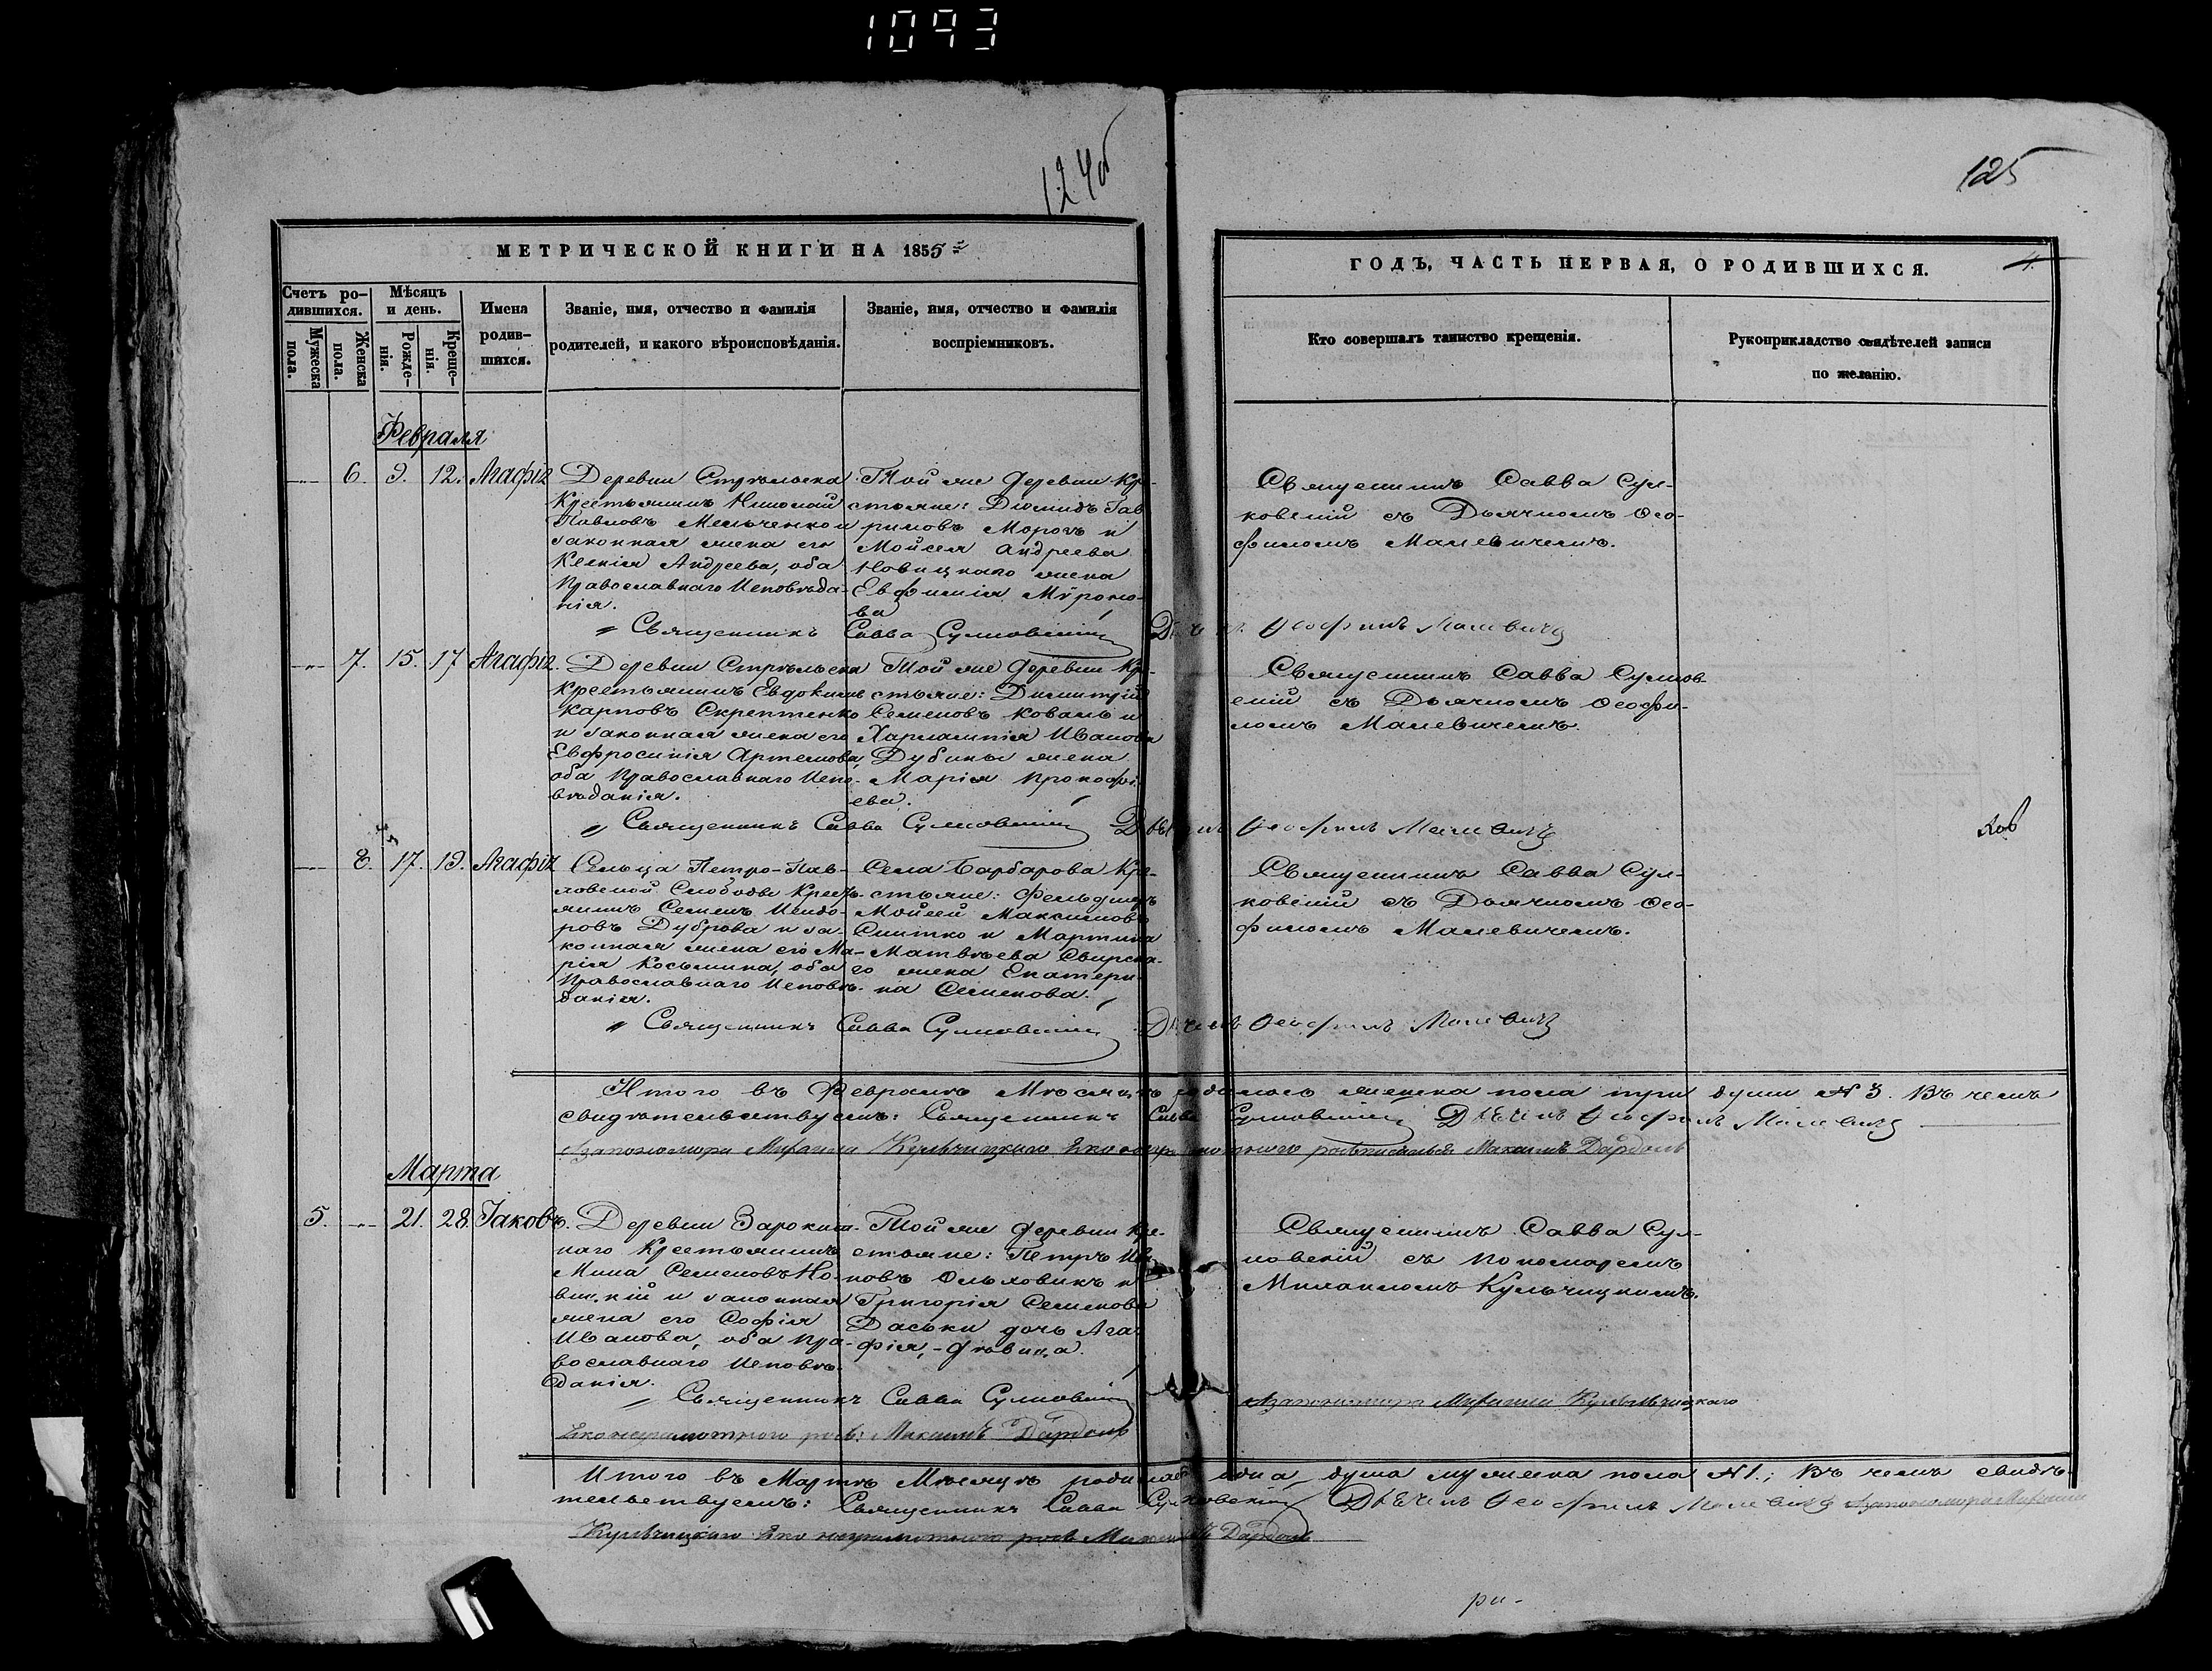 1093
124об
125
МЕТРИЧЕСКОЙ КНИГИ НА 1855
ГОДЪ, ЧАСТЬ ПЕРВАЯ, О РОДИВШИХСЯ.
4.
Счетъ родившихся.
Мужеска пола.
Женска пола.
Мѣсяцъ и день.
Рожденія.
Крещенія.
Имена родившихся.
Званіе, имя, отчество и фамилія
родителей, и какого вѣроисповѣданія.
Званіе, имя, отчество и фамилія
воспріемниковъ.
Кто совершалъ таинство крещенія.
Рукоприкладство свидѣтелей записи
по желанію.
Февраля
6. 9. 12. Агафія
Деревни Стрѣльска
Крестьянинъ Николай
Павловъ Мельченко и
законная жена его
Ксенія Андреева, оба
Православнаго Исповѣда-
нія.
Той же деревни Кре-
стьяне: Діомидъ Гав
риловъ Морозъ и
Мойсея Андреева
Новицкаго жена
Евфимія Мѵроно-
ва
Священникъ Савва Сул-
ковскій съ Дьячкомъ Ѳео-
филомъ Малевичемъ.
Священникъ Савва Сулковскій Дьячекъ Ѳеофилъ Малевичъ
7. 15. 17 Агафія.
Деревни Стрѣльска
Крестьянинъ Евдокимъ
Карповъ Скрептенко
и законная жена его
Евфросинія Артемова
оба Православнаго Испо-
вѣданія.
Той же деревни Кре-
стьяне: Димитрій
Семеновъ Коваль и
Харлампія Иванова
Дубины жена
Марія Прокофі-
ева.
Священникъ Савва Сулков-
скій съ Дьячкомъ Ѳеофи-
ломъ Малевичемъ.
Священникъ Савва Сулковскій Дьячекъ Ѳеофилъ Малевичъ
8. 17. 19. Агафія
Сельца Петро-Пав-
ловской Слободы Кресть-
янинъ Семенъ Исидо-
ровъ Дуброва и за-
конная жена его Ма-
рія Косьмина, оба
Православнаго Исповѣ-
данія.
Села Барбарова Кре-
стьяне: Фельдшеръ
Мойсей Максимовъ
Снитко и Мартина
Матвѣева Свирска-
го жена Екатери-
на Семенова.
Священникъ Савва Сул-
ковскій съ Дьячкомъ Ѳео-
филомъ Малевичемъ.
Священникъ Савва Сулковскій Дьячекъ Ѳеофилъ Малевичъ
Итого въ Февралѣ Мѣсяцѣ родилось женска пола три души № 3. Въ чемъ
свидѣтельствуемъ: Священникъ Савва Сулковскій Дьячекъ Ѳеофилъ Малевичъ
Максимъ Дардаль
Марта
5. 21. 28. Іаковъ.
Крестьянинъ
Мина Семеновъ Но-
вицкій и законная
жена его Софія
Иванова, оба Пра-
вославнаго Исповѣ-
данія.
Той же деревни Кре-
стьяне: Петръ Ива
новъ Ольховикъ и
Григорія Семенова
Даськи дочь Ага-
фія, - дѣвица.
Священникъ Савва Сул-
ковскій съ Пономаремъ
Михаиломъ Кульчицкимъ.
Священникъ Савва Сулковскій
Итого въ Мартѣ Мѣсяцѣ родилась одна душа мужеска пола № 1.; Въ чемъ свидѣ-
тельствуемъ: Священникъ Савва Сулковскій Дьячекъ Ѳеофилъ Малевичъ